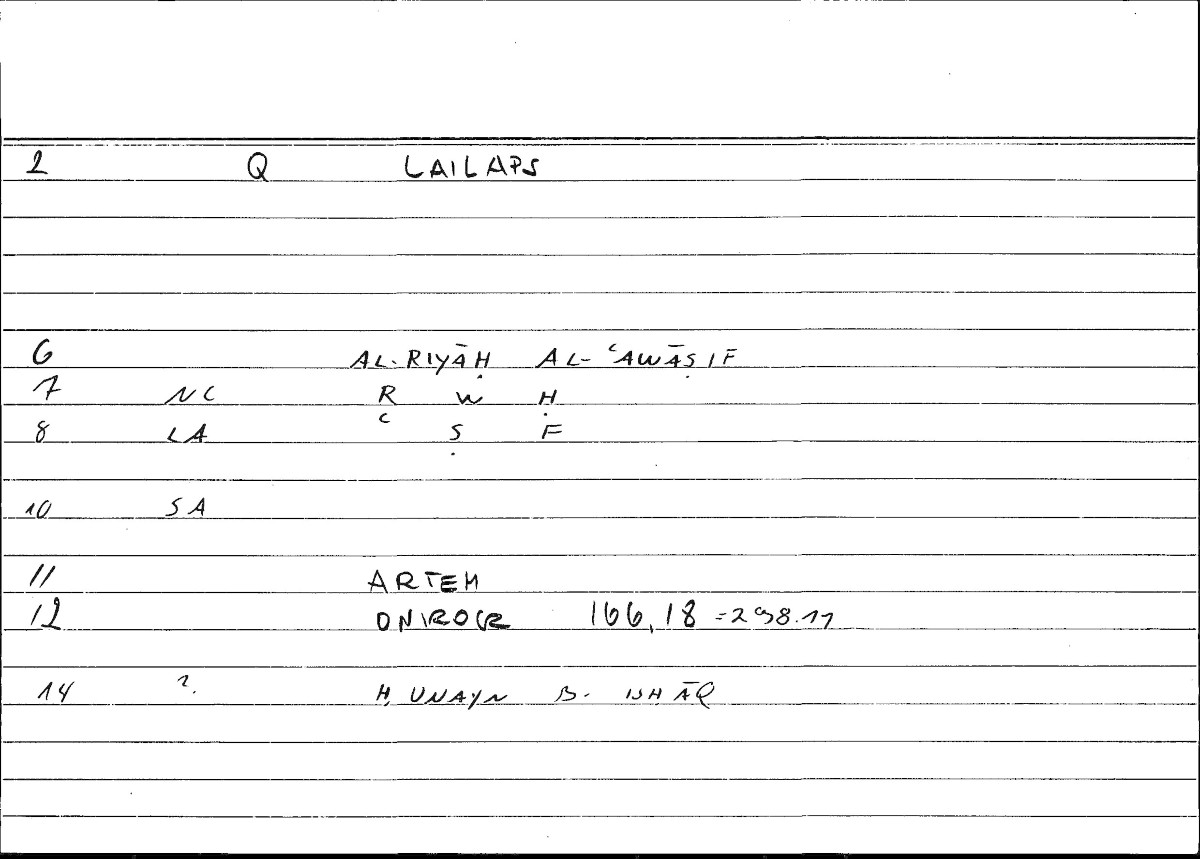 2 Q LAILAPS
6 AL-RIYĀḤ AL-ʿAWĀṢIF
7 NC R W Ḥ
8 LA ʿ Ṣ F
10 SA
11 ARTEM
12 ONIROCR 166,18 =298.11
14 ?. ḤUNAYN B- ISḤĀQ